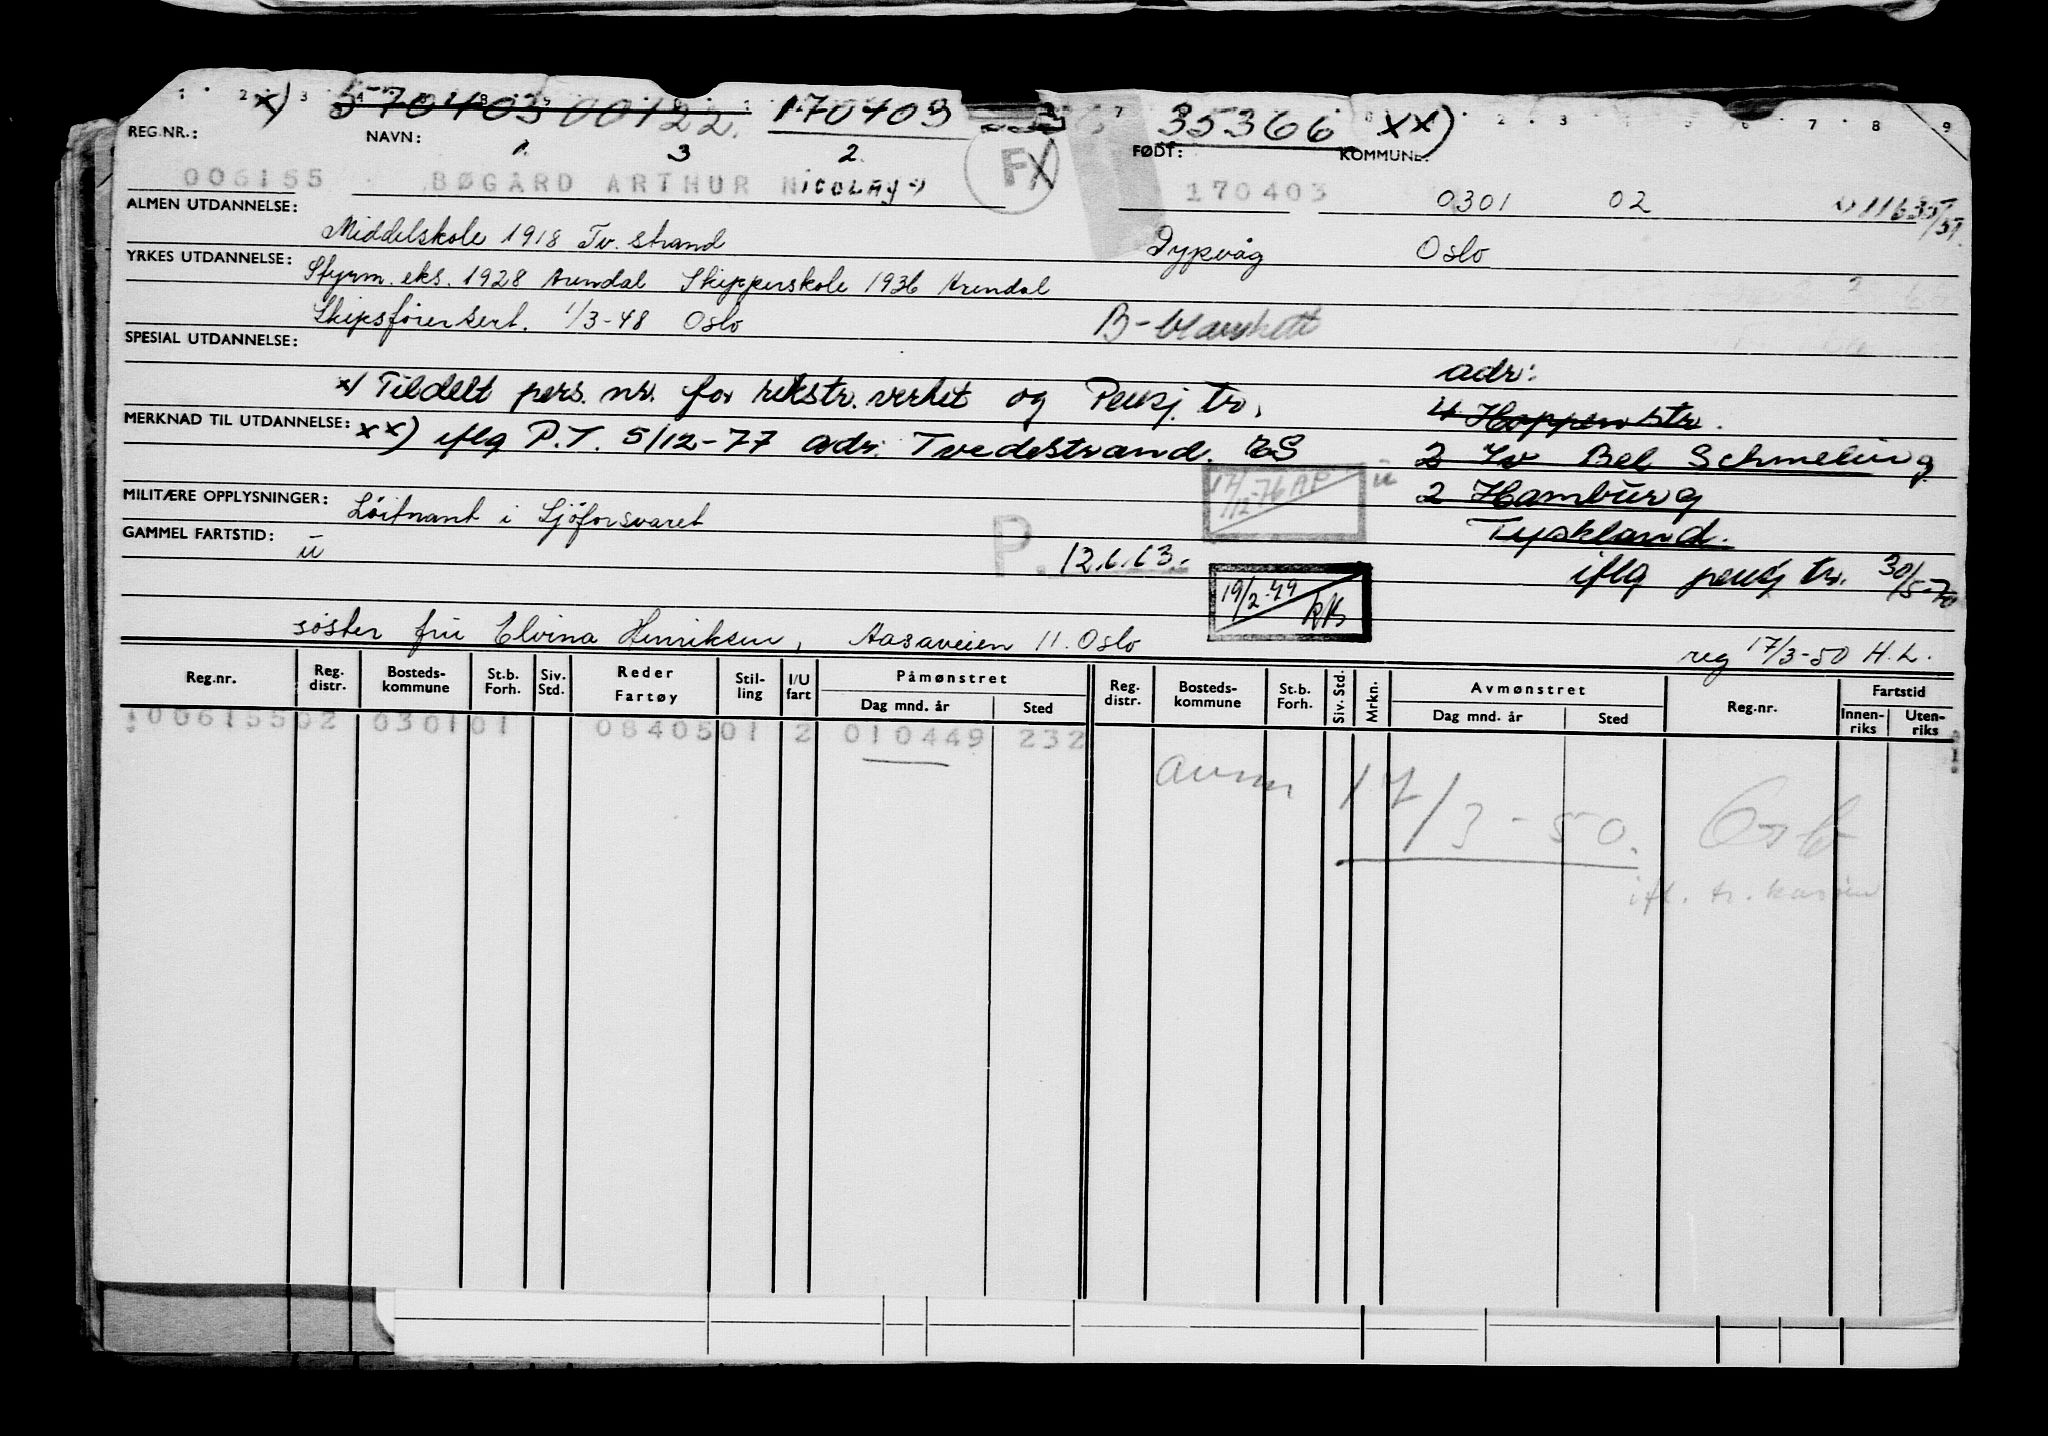 x) 570403 00122. 170403 35366 xx)
REG.NR.: NAVN: 1. 3 2. FØDT: KOMMUNE:
006155 BØGARD ARTHUR NICOLAY F 170403 0301 02
ALMEN UTDANNELSE: Middelskole 1918 Tv. strand Dypvåg Oslo
YRKES UTDANNELSE: Styrm. eks. 1928 Arendal Skipperskole 1936 Arendal
Skipsfører sert. 1/3-48 Oslo B-blankett
SPESIAL UTDANNELSE:
adr:
x) Tildelt pers. nr. for rikstr.verket og Pensj. tr. 4 Hoppenstr.
MERKNAD TIL UTDANNELSE: xx) iflg P.T. 5/12-77 adr. Tvedestrand. ES
2 Iv Bel Schmeling
17/12-76 AP ü
2 Hamburg
MILITÆRE OPPLYSNINGER: Løitnant i Sjöforsvaret
Tyskland.
GAMMEL FARTSTID: ü P. 12.6.63.
iflg pensj tr. 30/5-70
19/2-49 RB
søster fru Elvina Henriksen, Aasaveien 11. Oslo reg 17/3-50 H.L.
Reg.nr. Reg. distr. Bosteds- kommune St.b. Forh. Siv. Std. Reder Fartøy Stil- ling I/U fart Påmønstret Dag mnd. år Sted Reg. distr. Bosteds- kommune St.b. Forh. Siv. Std. Mrkn. Avmønstret Dag mnd. år Sted Reg.nr. Fartstid Innen- riks Uten- riks
006155 02 0301 01 0840501 2 010449 232
avm 17/3-50. Oslo
ifl. tr. kassen